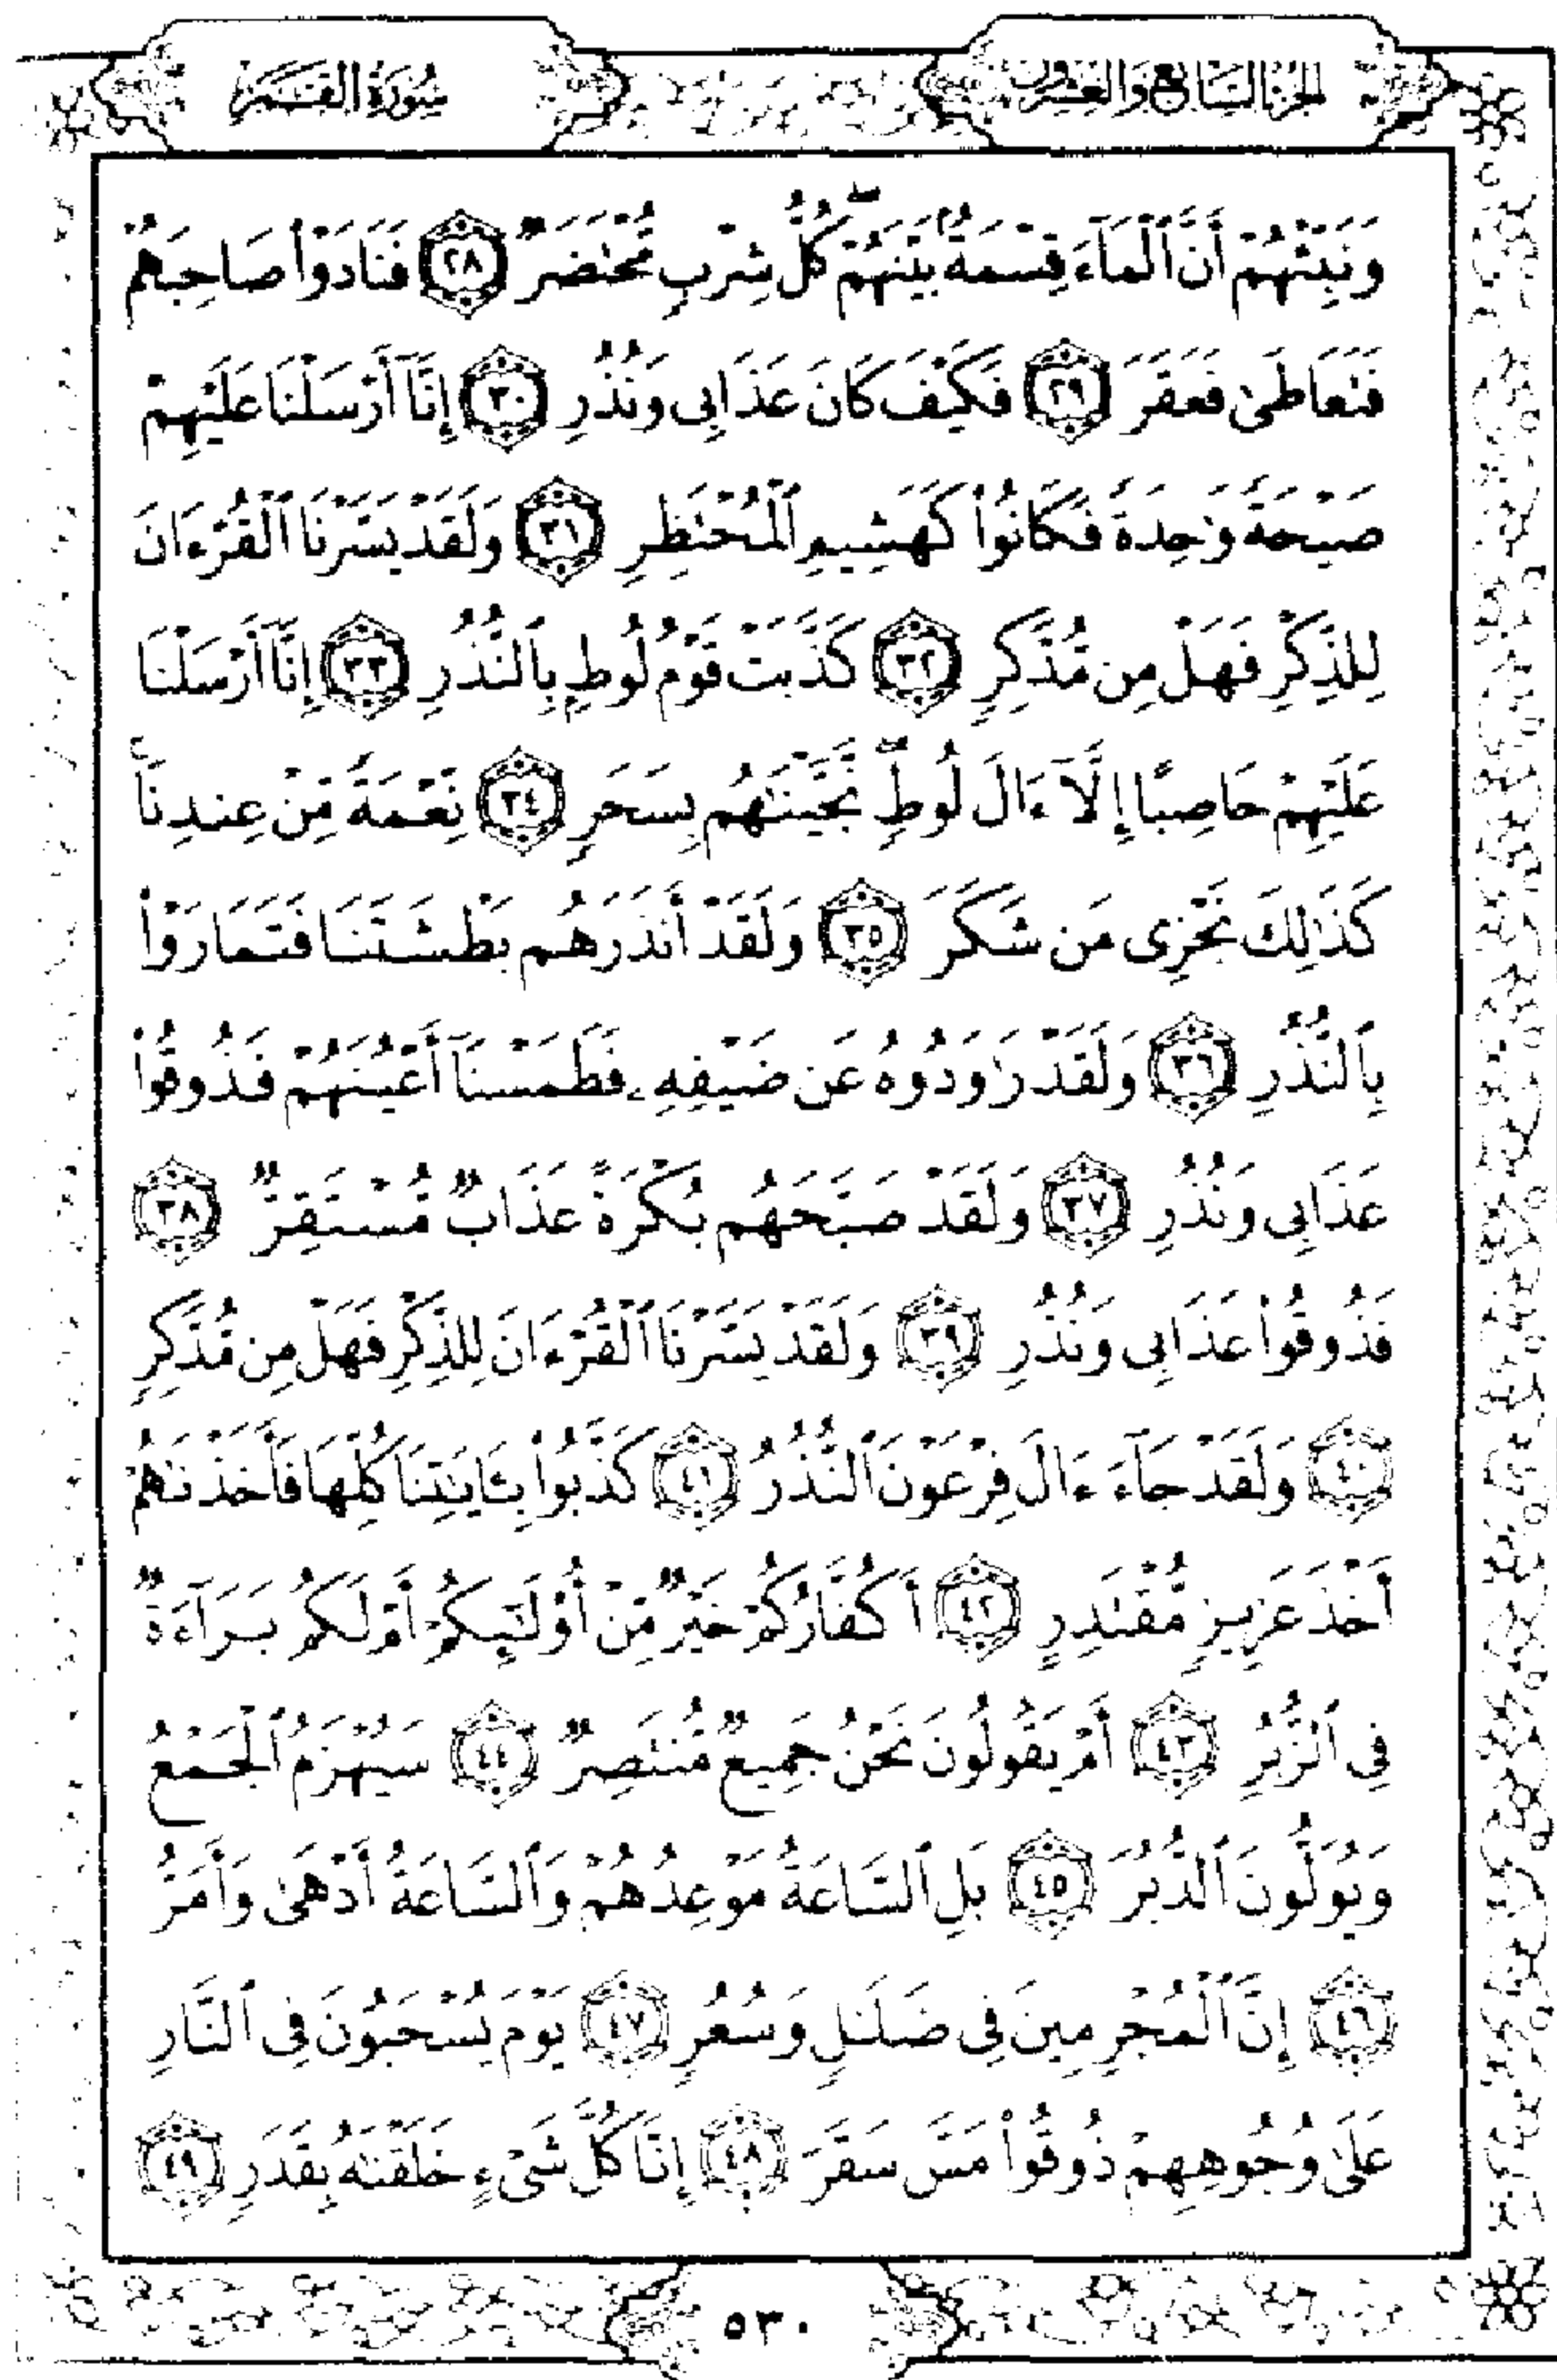 الجزء السابع والعشرون
سورة القمر
وَنَبِّئْهُمْ أَنَّ ٱلْمَآءَ قِسْمَةٌۢ بَيْنَهُمْۖ كُلُّ شِرْبٍ مُّحْتَضَرٌ ٢٨ فَنَادَوْا۟ صَاحِبَهُمْ
فَتَعَاطَىٰ فَعَقَرَ ٢٩ فَكَيْفَ كَانَ عَذَابِى وَنُذُرِ ٣٠ إِنَّآ أَرْسَلْنَا عَلَيْهِمْ
صَيْحَةً وَٰحِدَةً فَكَانُوا۟ كَهَشِيمِ ٱلْمُحْتَظِرِ ٣١ وَلَقَدْ يَسَّرْنَا ٱلْقُرْءَانَ
لِلذِّكْرِ فَهَلْ مِن مُّدَّكِرٍ ٣٢ كَذَّبَتْ قَوْمُ لُوطٍۭ بِٱلنُّذُرِ ٣٣ إِنَّآ أَرْسَلْنَا
عَلَيْهِمْ حَاصِبًا إِلَّآ ءَالَ لُوطٍۖ نَّجَّيْنَٰهُم بِسَحَرٍ ٣٤ نِّعْمَةً مِّنْ عِندِنَاۚ
كَذَٰلِكَ نَجْزِى مَن شَكَرَ ٣٥ وَلَقَدْ أَنذَرَهُم بَطْشَتَنَا فَتَمَارَوْا۟
بِٱلنُّذُرِ ٣٦ وَلَقَدْ رَٰوَدُوهُ عَن ضَيْفِهِۦ فَطَمَسْنَآ أَعْيُنَهُمْ فَذُوقُوا۟
عَذَابِى وَنُذُرِ ٣٧ وَلَقَدْ صَبَّحَهُم بُكْرَةً عَذَابٌ مُّسْتَقِرٌّ ٣٨
فَذُوقُوا۟ عَذَابِى وَنُذُرِ ٣٩ وَلَقَدْ يَسَّرْنَا ٱلْقُرْءَانَ لِلذِّكْرِ فَهَلْ مِن مُّدَّكِرٍ
٤٠ وَلَقَدْ جَآءَ ءَالَ فِرْعَوْنَ ٱلنُّذُرُ ٤١ كَذَّبُوا۟ بِـَٔايَٰتِنَا كُلِّهَا فَأَخَذْنَٰهُمْ
أَخْذَ عَزِيزٍ مُّقْتَدِرٍ ٤٢ أَكُفَّارُكُمْ خَيْرٌ مِّنْ أُو۟لَٰٓئِكُمْ أَمْ لَكُم بَرَآءَةٌ
فِى ٱلزُّبُرِ ٤٣ أَمْ يَقُولُونَ نَحْنُ جَمِيعٌ مُّنتَصِرٌ ٤٤ سَيُهْزَمُ ٱلْجَمْعُ
وَيُوَلُّونَ ٱلدُّبُرَ ٤٥ بَلِ ٱلسَّاعَةُ مَوْعِدُهُمْ وَٱلسَّاعَةُ أَدْهَىٰ وَأَمَرُّ
٤٦ إِنَّ ٱلْمُجْرِمِينَ فِى ضَلَٰلٍ وَسُعُرٍ ٤٧ يَوْمَ يُسْحَبُونَ فِى ٱلنَّارِ
عَلَىٰ وُجُوهِهِمْ ذُوقُوا۟ مَسَّ سَقَرَ ٤٨ إِنَّا كُلَّ شَىْءٍ خَلَقْنَٰهُ بِقَدَرٍ ٤٩
٥٣٠